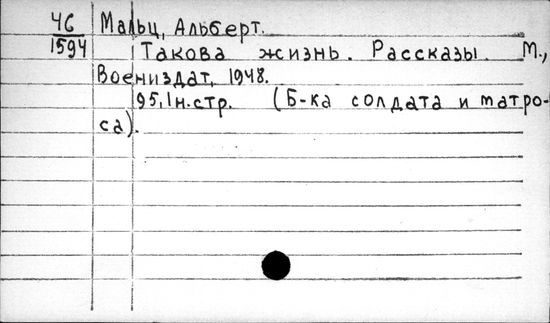 46 Мальц, Альберт.
1594 Такова жизнь. Рассказы. М.,
Воениздат, 1948.
95,1н.стр. (Б-ка солдата и матро-
са).